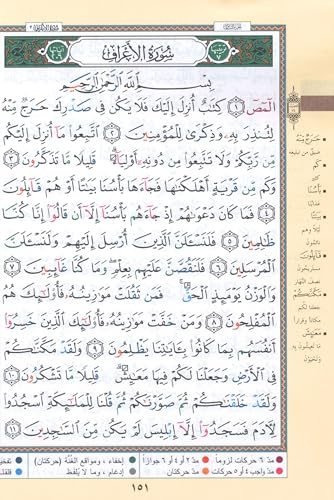 سُورَةُ الأَعْرَافِ
بِسْمِ اللَّهِ الرَّحْمَٰنِ الرَّحِيمِ
الٓمٓصٓ ١ كِتَٰبٌ أُنزِلَ إِلَيْكَ فَلَا يَكُن فِى صَدْرِكَ حَرَجٌ مِّنْهُ
لِتُنذِرَ بِهِۦ وَذِكْرَىٰ لِلْمُؤْمِنِينَ ٢ ٱتَّبِعُوا۟ مَآ أُنزِلَ إِلَيْكُم
مِّن رَّبِّكُمْ وَلَا تَتَّبِعُوا۟ مِن دُونِهِۦٓ أَوْلِيَآءَ ۗ قَلِيلًا مَّا تَذَكَّرُونَ ٣
وَكَم مِّن قَرْيَةٍ أَهْلَكْنَٰهَا فَجَآءَهَا بَأْسُنَا بَيَٰتًا أَوْ هُمْ قَآئِلُونَ
٤ فَمَا كَانَ دَعْوَىٰهُمْ إِذْ جَآءَهُم بَأْسُنَآ إِلَّآ أَن قَالُوٓا۟ إِنَّا كُنَّا
ظَٰلِمِينَ ٥ فَلَنَسْـَٔلَنَّ ٱلَّذِينَ أُرْسِلَ إِلَيْهِمْ وَلَنَسْـَٔلَنَّ
ٱلْمُرْسَلِينَ ٦ فَلَنَقُصَّنَّ عَلَيْهِم بِعِلْمٍ ۖ وَمَا كُنَّا غَآئِبِينَ ٧
وَٱلْوَزْنُ يَوْمَئِذٍ ٱلْحَقُّ ۚ فَمَن ثَقُلَتْ مَوَٰزِينُهُۥ فَأُو۟لَٰٓئِكَ هُمُ
ٱلْمُفْلِحُونَ ٨ وَمَنْ خَفَّتْ مَوَٰزِينُهُۥ فَأُو۟لَٰٓئِكَ ٱلَّذِينَ خَسِرُوٓا۟
أَنفُسَهُم بِمَا كَانُوا۟ بِـَٔايَٰتِنَا يَظْلِمُونَ ٩ وَلَقَدْ مَكَّنَّٰكُمْ
فِى ٱلْأَرْضِ وَجَعَلْنَا لَكُمْ فِيهَا مَعَٰيِشَ ۗ قَلِيلًا مَّا تَشْكُرُونَ ١٠
وَلَقَدْ خَلَقْنَٰكُمْ ثُمَّ صَوَّرْنَٰكُمْ ثُمَّ قُلْنَا لِلْمَلَٰٓئِكَةِ ٱسْجُدُوا۟
لِءَادَمَ فَسَجَدُوٓا۟ إِلَّآ إِبْلِيسَ لَمْ يَكُن مِّنَ ٱلسَّٰجِدِينَ ١١
حَرَجٌ مِّنْهُ
ضيق من تبليغه
كَم
كثير
بَأْسُنَا
عذابنا
بَيَٰتًا
ليلاً وهم
نائمون
قَآئِلُونَ
مستريحون
نصف النهار
مَكَّنَّٰكُمْ
جعلنا لكم
مكاناً وقراراً
مَعَٰيِشَ
ما تعيشون به
وتحيون
مدّ ٦ حركات لزوماً مدّ ٢ أو ٤ أو ٦ جوازاً إخفاء، ومواقع الغُنَّة (حركتان)
مدّ واجب ٤ أو ٥ حركات مدّ حركتان إدغام، وما لا يُلفَظ
١٥١